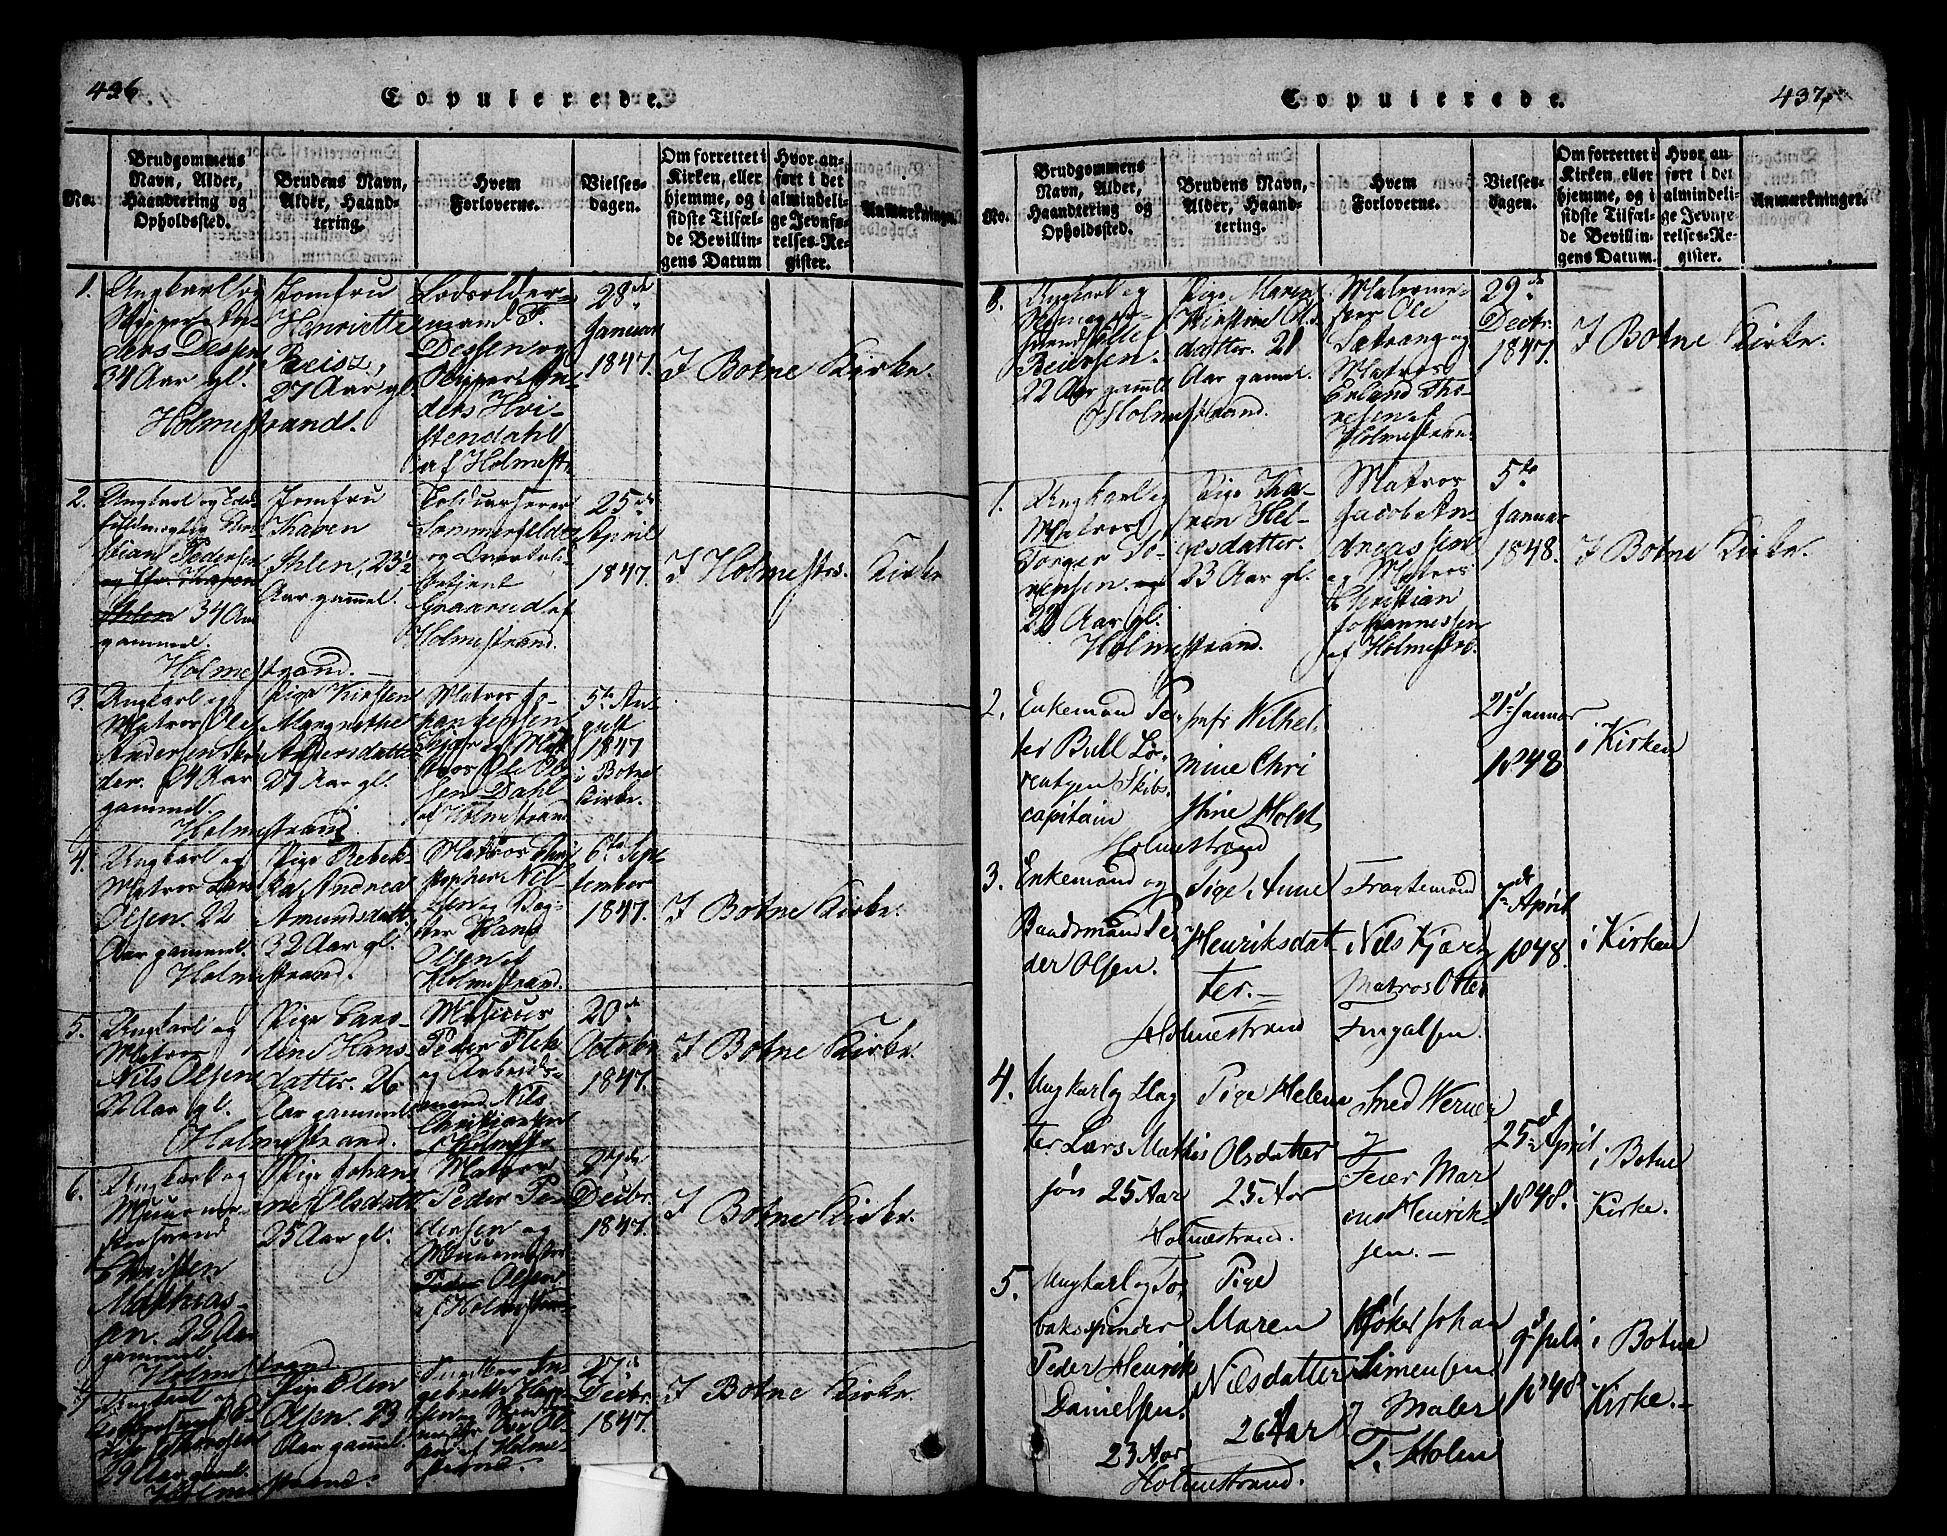 436
Copulerede.
No.
Brudgommens
Navn, Alder,
Haandtering og
Opholdssted.
Brudens Navn,
Alder, Haand-
tering.
Hvem
Forloverne.
Vielses-
dagen.
Om forrettet i
Kirken, eller
hjemme, og i
sidste Tilfæl-
de Bevillin-
gens Datum
Hvor an-
ført i det
almindeli-
ge Jevnfø-
relses-Re-
gister.
Anmærkninger.
1.
Ungkarl og
Skipper An-
ders Dessen,
34 Aar gl.
Holmestrand.
Jomfru
Henriette
Reisz,
27 Aar gl.
Lodsolder-
mand F.
Dessen og
Skipper An-
ders Hvi-
stendahl
af Holmest.
28de
Januar
1847.
I Botne Kirke.
2.
Ungkarl og
Pedersen
34 Aar
gammel
Holmestrand.
Jomfru
Karen
Ihlen, 23½
Aar gammel.
Sommerfeldt
og
Graarud af
Holmestrand.
25de
April
1847.
I Holmestrs. Kirke
3.
Ungkarl og
Matros Ole
Andersen
24 Aar
gammel.
Holmestrand
Pige Kirsten
Margrethe
Andersdatter
27 Aar gl.
Matros Jo-
han Jensen
og Mat-
ros Ole Ol-
sen Dahl
af Holmestrand
5te Au-
gust
1847
i Botne
Kirke.
4.
Ungkarl og
Matros Lars
Olsen. 22
Aar gammel.
Holmestrand.
Pige Rebek-
ka Andrea
Amundsdatt.
32 Aar gl.
Matros Chri-
stopher Nil-
sen og
Hans
Olsen af
Holmestrand.
6te Sept-
tember
1847.
I Botne Kirke.
5.
Ungkarl og
Matros
Nils Olsen
22 Aar gl.
Holmestrand.
Pige
Hans-
datter. 26
Aar gammel.
Peder Flek
og Arbeids-
mand Nils
Christiansen
Holmestr.
20de
October
1847.
I Botne Kirke.
6.
Ungkarl og
Christen
Mathias-
sen. 22 Aar
gammel
Holmestrand
Pige Johan-
ne Olsdatt.
25 Aar gl.
Matros
Peder Pe-
dersen og
Muurmester
Olsen
af Holmestrand
27de
Decbr.
1847.
I Botne Kirke.
7.
Ungkarl og
29 Aar gaml.
Holmestrand.
Pige
Olsen. 23
Aar gammel.
af Holme-
strand.
27de
Decbr.
1847.
I Botne Kirke.
437
Copulerede.
No.
Brudgommens
Navn, Alder,
Haandtering og
Opholdssted.
Brudens Navn,
Alder, Haand-
tering.
Hvem
Forloverne.
Vielses-
dagen.
Om forrettet i
Kirken, eller
hjemme, og i
sidste Tilfæl-
de Bevillin-
gens Datum.
Hvor an-
ført i det
almindeli-
ge Jevnfø-
relses-Re-
gister.
Anmærkninger.
8.
Ungkarl og
Reiersen.
22 Aar gammel
Holmestrand.
Pige Maren
Kirstine Ols-
datter. 21
Aar gammel.
Ole
Matros
Erland Tho-
resen af
Holmestrand.
29de
Decbr.
1847.
I Botne Kirke.
1.
Ungkarl og
Matros
Torger So-
rensen.
22 Aar gl.
Holmestrand.
Pige Ka-
ren Hel-
gesdatter.
23 Aar gl.
Matros
Jacob An-
dreassen
og Matros
Christian
Johannessen
af Holmestr.
5te
Januar
1848.
I Botne Kirke.
2.
Enkemand Pe-
ter Bull Lo-
rentzen Skibs
capitain
Holmestrand
Jmfr Wilhel-
mine Chri
stine Holst
21d Januar
1848
i Kirken
3.
Enkemand og
Baadsmand Pe
der Olsen.
Holmestrand
Pige Anne
Henriksdat
ter.
Fragtemand
Nils Kjær
Matros Otter
Fingalsen
7de April
1848.
i Kirken
4.
Ungkarl og Slag
ter Lars Mathis
søn 25 Aar
Holmestrand.
Pige Helene
Olsdatter
25 Aar
Smed Werner
og
Feier Mar
ius Henrik-
sen.
25d April
1848.
i Botne
Kirke.
5.
Ungkarl og To-
baksspinder
Peder Henrik
Danielsen.
23 Aar
Holmestrand.
Pige
Maren
Nilsdatter
26 Aar
Høker Johan
Simensen
og Maler
T. Holm
9d Juli
1848
i Botne
Kirke.